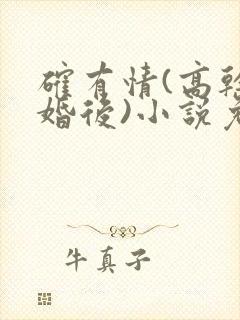 確有情(高幹
婚後)小說免
牛真子